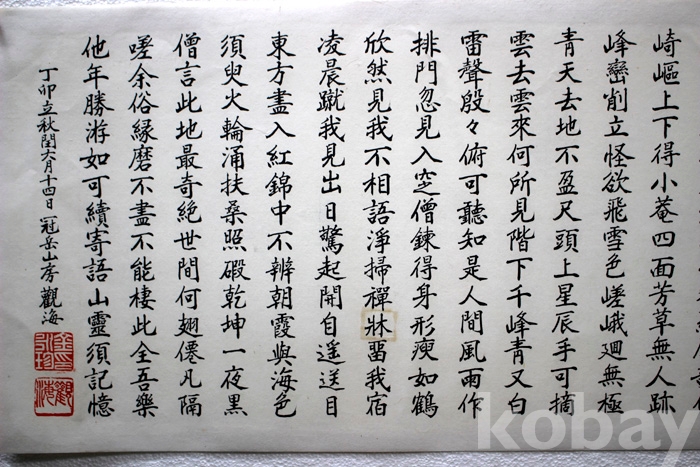 崎嶇上下得小菴四面芳草無人跡
峰巒削立怪欲飛雪色嵯峨廻無極
青天去地不盈尺頭上星辰手可摘
雲去雲來何所見階下千峰青又白
雷聲殷々俯可聽知是人間風雨作
排門忽見入㝎僧鍊得身形瘦如鶴
欣然見我不相語淨掃禪牀畱我宿
凌晨蹴我見出日驚起開自遙送目
東方盡入紅錦中不辨朝霞與海色
須臾火輪涌扶桑照乾坤一夜黑
僧言此地最奇絕世間何翅僊凡隔
嗟余俗緣磨不盡不能棲此全吾樂
他年勝游如可續寄語山靈須記憶
丁卯立秋閏六月十四日冠岳山房觀海
觀海
kobay